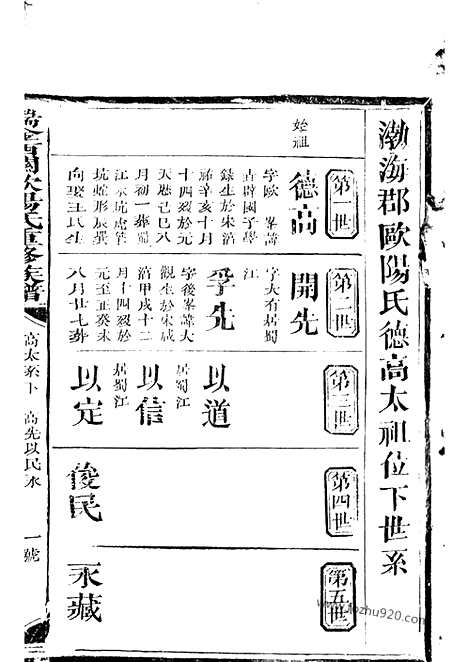 渤海郡歐陽氏德高太祖位下世系
第一世
第二世
第三世
第四世
第五世
始祖
德高
字歐 峯
古辟國子學
錄生於宋淳
祐辛亥十月
十四歿於元
天悳己巳八
月初一葬蜀
江東坑虎第
坑蛇形辰巽
向娶王氏生
開先
字大有居蜀
江
孚先
字後峯諱大
觀生於宋咸
淳甲戌十二
月十四歿於
元至正癸未
八月廿七葬
以道
以信
居蜀江
以定
居蜀江
俊民
永藏
歐陽氏重修族譜
高太系下
高先以民永
一號
zhu920.com